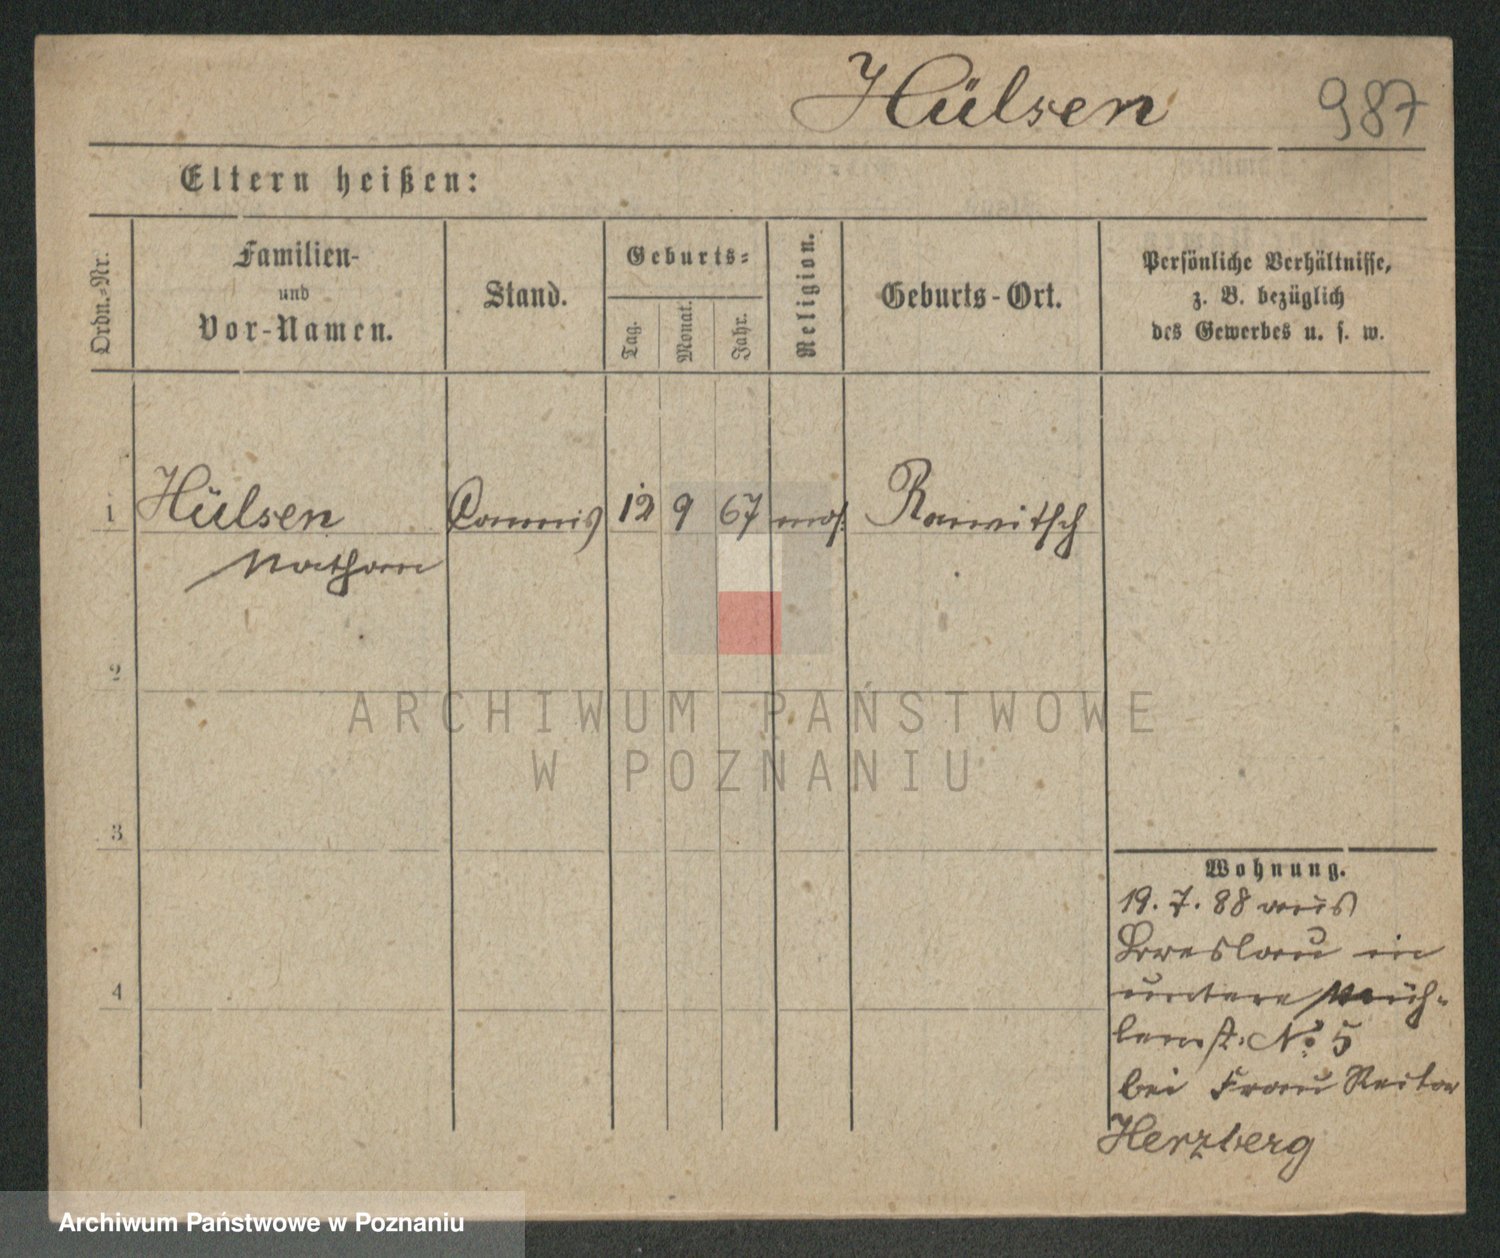 Hülsen 987
Eltern heißen:
Ordn.-Nr.
Familien-
und
Vor-Namen.
Stand.
Geburts-
Tag.
Monat.
Jahr.
Religion.
Geburts-Ort.
Persönliche Verhältnisse,
z. B. bezüglich
des Gewerbes u. s. w.
1 Hülsen Commis 12 9 67 mos. Rawitsch
Nathan
2
3
4
Wohnung.
19. 7. 88 aus
Breslau in
untere Müh-
lenst. No 5
bei Frau Rector
Herzberg
ARCHIWUM PAŃSTWOWE
W POZNANIU
Archiwum Państwowe w Poznaniu